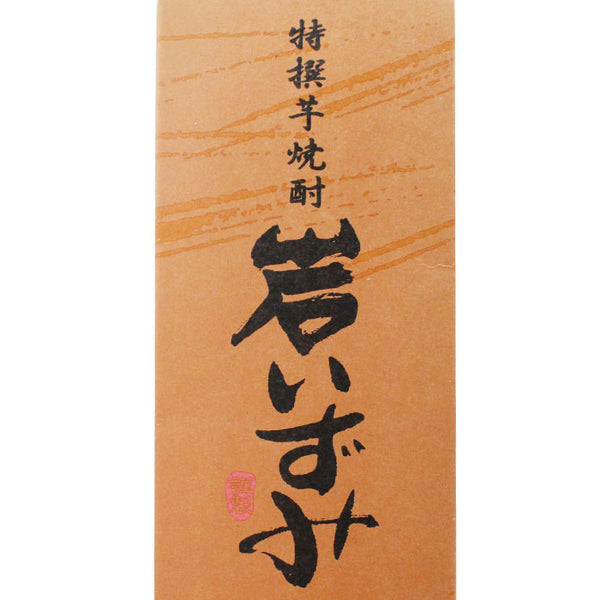 特撰芋焼酎
岩いずみ
謹製